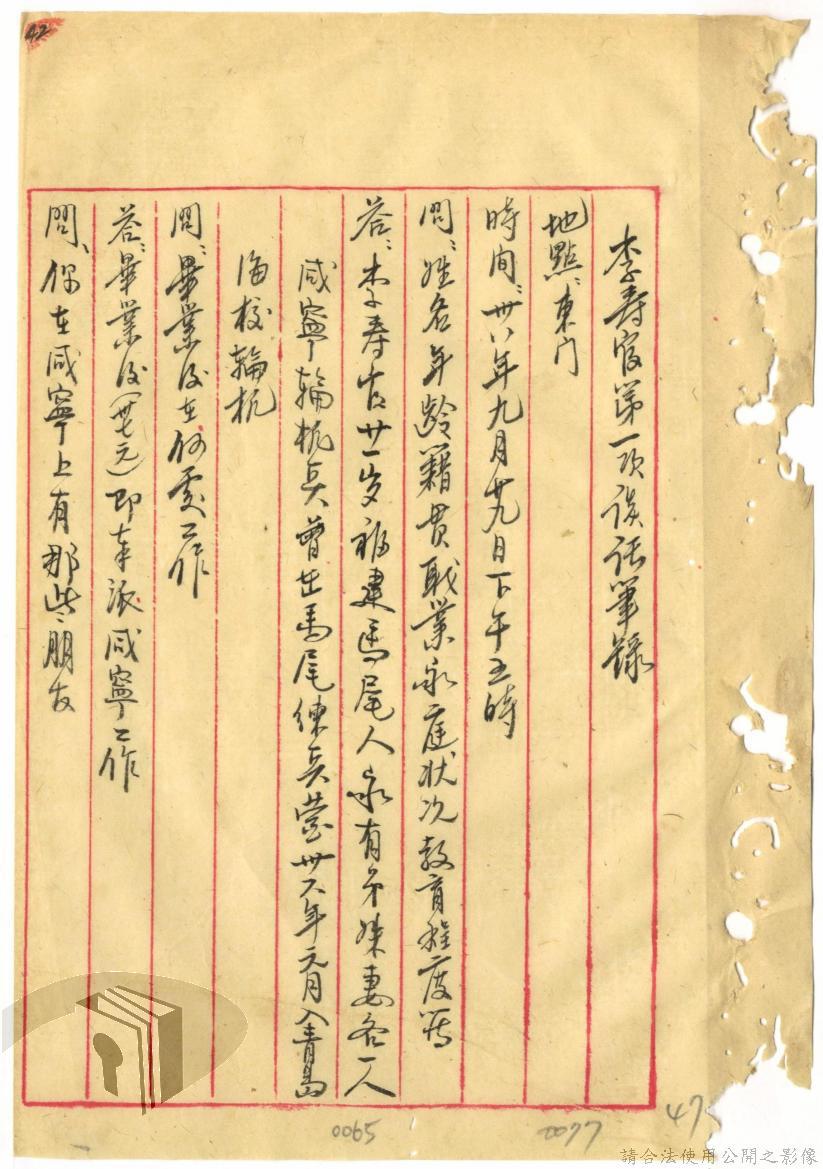 42
李寿官第一次談話筆錄
地點:東门
時间:卅八年九月廿九日下午五時
問:姓名年齡籍貫職業家庭状况教育程度等
答:李寿官廿一岁福建馬尾人家有弟妹妻各一人
咸寧輪机兵曾在馬尾練兵营卅六年元月入青島
海校輪机
問:畢業後在何處工作
答:畢業後(卅七元)即奉派咸寧工作
問:你在咸寧上有那些朋友
0065
0077
47
請合法使用公開之影像